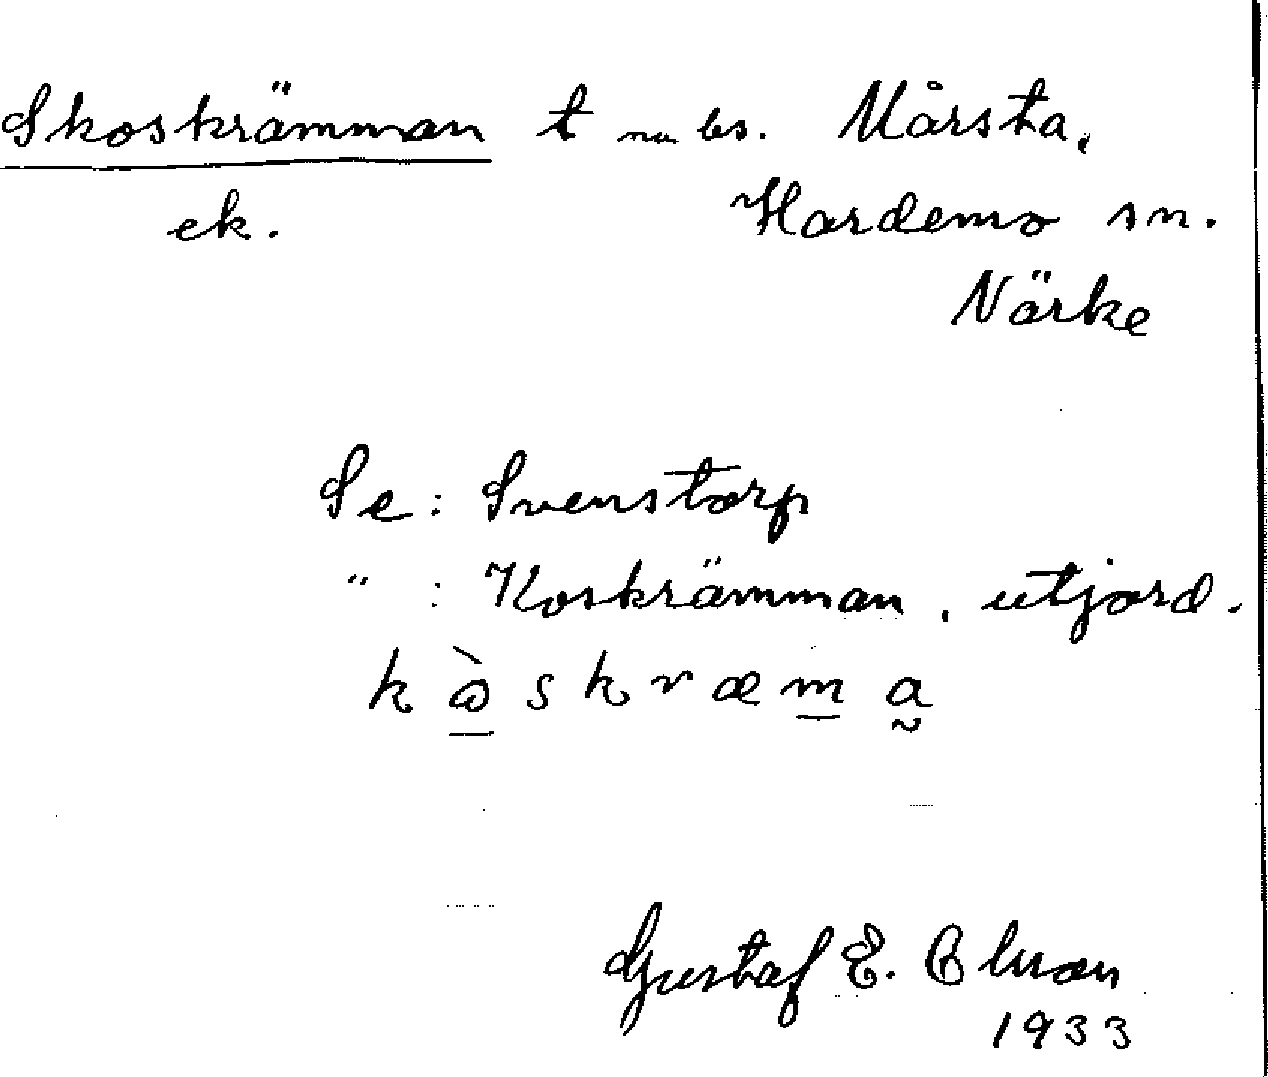 Skoskrämman t na bs. Mårsta,
ek. Hardemo sn.
Närke
Se: Svenstorp
" : Koskrämman, utjord.
k ò s k r æ m a
Gustaf E.
1933